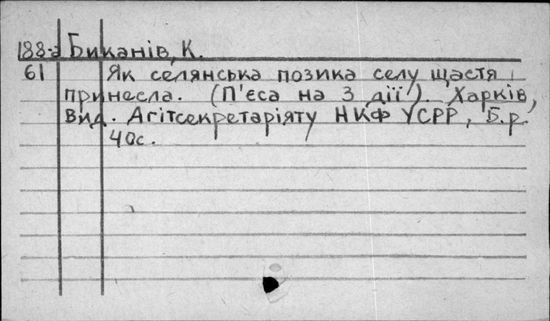 188-а Биканів, К.
61 Як селянська позика селу щастя
принесла. (П'єса на 3 дії). Харків,
Вид. Агітсекретаріяту НКФ УСРР, Б.р.
40с.